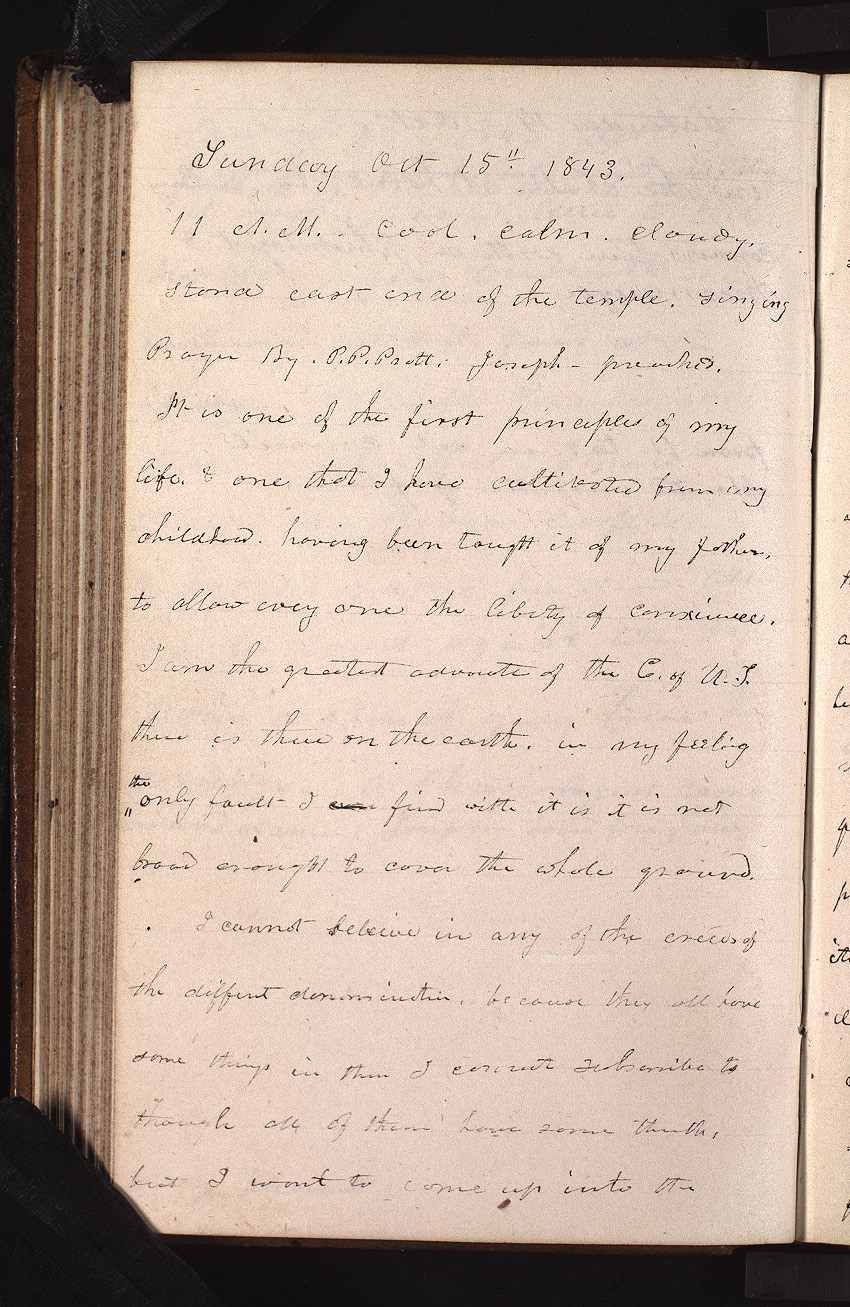 Sunday Oct 15" 1843.
11 A.M. - cool. calm. cloudy.
stand east end of the temple. singing
Prayer By. P.P. Pratt. Joseph - preached.
It is one of the first principles of my
life. & one that I have cultivated from my
childhood. having been taught it of my father,
to allow evey one the libety of conscience.
I am the greatest advocate of the C. of U.S.
there is there on the earth. in my feeling
the
"only fault I can find with it is it is not
broad enought to cover the whole ground.
. I cannot beleive in any of the creeds of
the diffent denominatin. because they all have
some things in them I cannot subscribe to
though all of them have some thruth,
but I want to come up into the